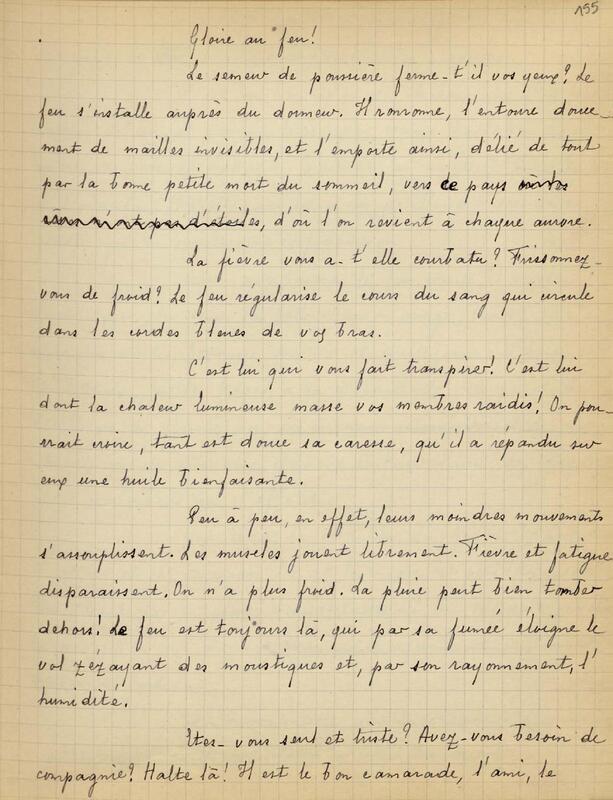 155
Gloire au feu!
Le semeur de poussière ferme-t'il vos yeux? Le
feu s'installe auprès du dormeur. Il ronronne, l'entoure douce-
ment de mailles invisibles, et l'emporte ainsi, délié de tout
par la bonne petite mort du sommeil, vers ce pays
d'où l'on revient à chaque aurore.
La fièvre vous a-t'elle courbatu? Frissonnez-
vous de froid? Le feu régularise le cours du sang qui circule
dans les cordes bleues de vos bras.
C'est lui qui vous fait transpirer! C'est lui
dont la chaleur lumineuse masse vos membres raidis! On pou-
rrait croire, tant est douce sa caresse, qu'il a répandu sur
eux une huile bienfaisante.
Peu à peu, en effet, leurs moindres mouvements
s'assouplissent. Les muscles jouent librement. Fièvre et fatigue
disparaissent. On n'a plus froid. La pluie peut bien tomber
dehors! Le feu est toujours là, qui par sa fumée éloigne le
vol zézayant des moustiques et, par son rayonnement, l'
humidité.
Etes-vous seul et triste? Avez-vous besoin de
compagnie? Halte là! Il est le bon camarade, l'ami, le